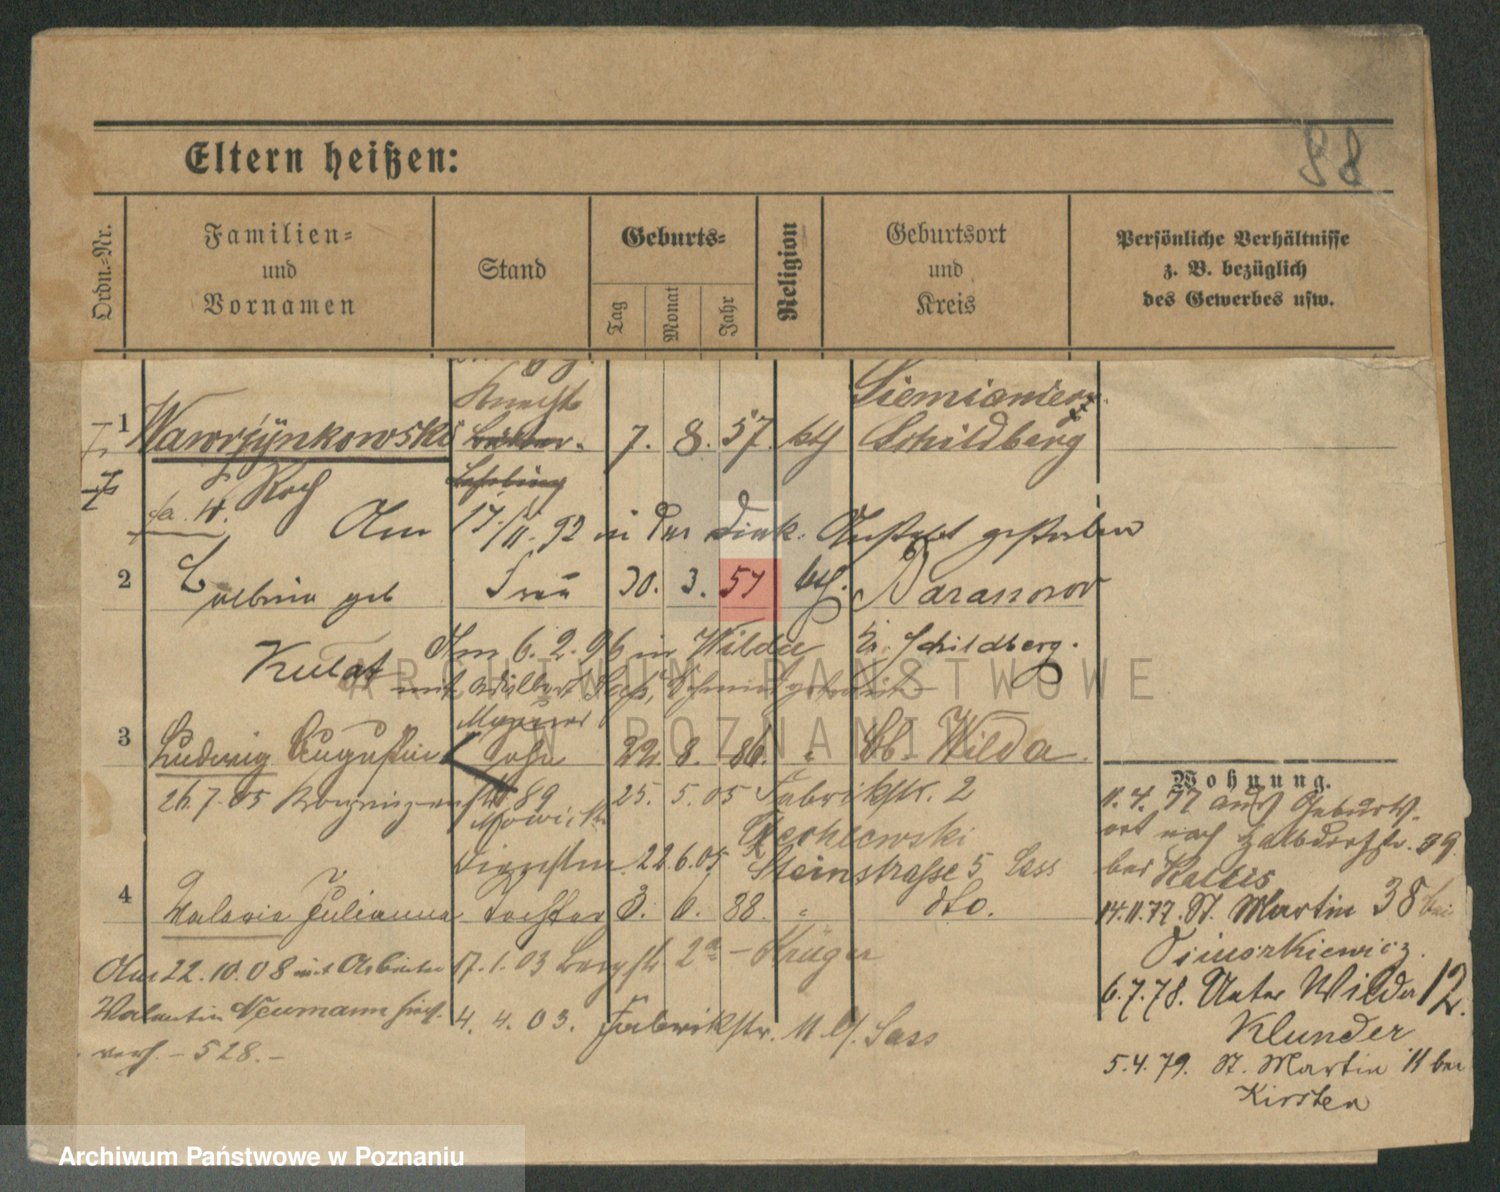 88
Eltern heißen:
Ordn.-Nr.
Familien- und Vornamen
Stand
Geburts-
Tag
Monat
Jahr
Religion
Geburtsort und Kreis
Persönliche Verhältnisse
z. B. bezüglich
des Gewerbes usw.
Siemianiec
1 Wawrzynkowski 7. 8. 57. kth Schildberg
Roch
Am 17./11. 92 in der Diak. Anstalt gestorben
2 geb Frau 30. 3. 57 kth. Baranow
Kulat Am 6. 2. 96 in Wilda Kr. Schildberg.
mit
3 Ludwig Augustin Sohn 22. 8. 86. " Wilda
26.7.05 89 25. 5. 05 Fabrikstr. 2
22.6.05 Steinstrasse 5 Sass
4 Valeria Julianna Tochter 3. 6. 88. " dto.
Am 22. 10. 08 mit Arbeiter 17. 1. 03 Bergstr. 2a - Krüger
Valentin Neumann hier
verh. - 528. -
4. 4. 03. Fabrikstr. 11 b/ Sass
Wohnung.
11. 4. 77 aus Geburts-
ort nach Halbdorfstr. 39
bei
14.11.77. St. Martin 38 bei
6.7.78. Unter Wilda 12.
Klunder
5.4.79. St. Martin 11 bei
Kirsten
ARCHIWUM PAŃSTWOWE
W POZNANIU
Archiwum Państwowe w Poznaniu